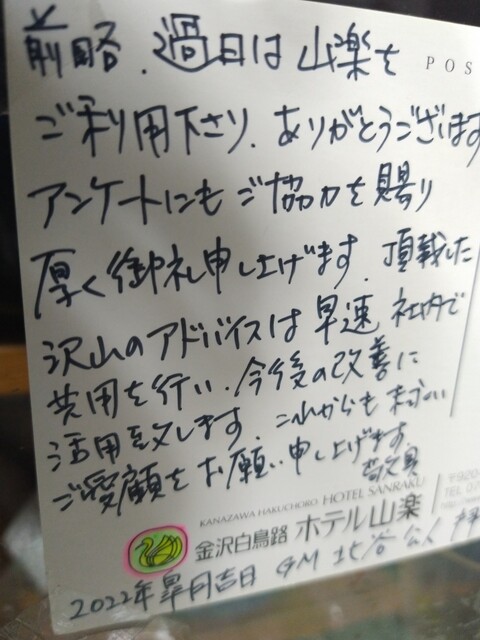 前略、過日は山楽を
POS
ご利用下さり、ありがとうございます
アンケートにもご協力を賜り
厚く御礼申し上げます。頂戴した
沢山のアドバイスは早速社内で
共用を行い、今後の改善に
活用致します。これからも末永い
ご愛顧をお願い申し上げます。
敬具
〒920
TEL 07
KANAZAWA HAKUCHORO HOTEL SANRAKU
金沢白鳥路 ホテル山楽
2022年皐月吉日 GM 北谷